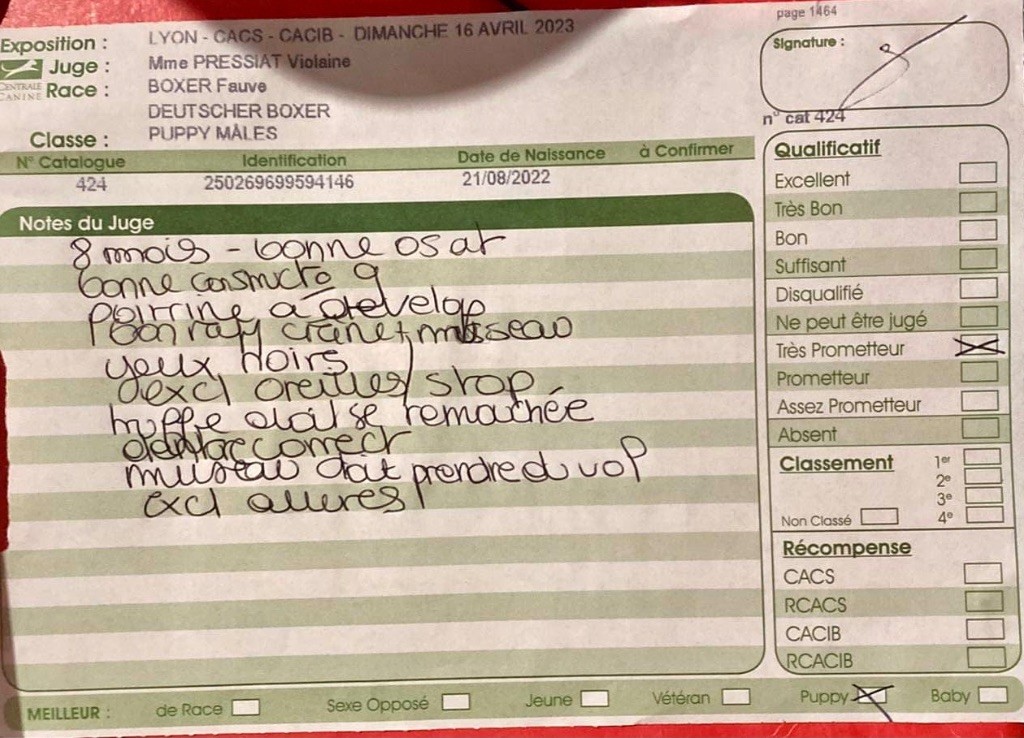 page 1464
Exposition : LYON - CACS - CACIB - DIMANCHE 16 AVRIL 2023
Juge : Mme PRESSIAT Violaine
CENTRALE CANINE
Race : BOXER Fauve
DEUTSCHER BOXER
Classe : PUPPY MÂLES
Signature :
n° cat 424
N° Catalogue Identification Date de Naissance à Confirmer
424 250269699594146 21/08/2022
Notes du Juge
8 mois - bonne osat
bonne constructo g
poitrine a develop
crane + museau
yeux noirs
excl oreilles / stop
doit se remachée
correct
museau doit prendre du vol
excl allures
Qualificatif
Excellent
Très Bon
Bon
Suffisant
Disqualifié
Ne peut être jugé
Très Prometteur
Prometteur
Assez Prometteur
Absent
Classement 1er
2e
3e
Non Classé 4e
Récompense
CACS
RCACS
CACIB
RCACIB
MEILLEUR : de Race Sexe Opposé Jeune Vétéran Puppy Baby